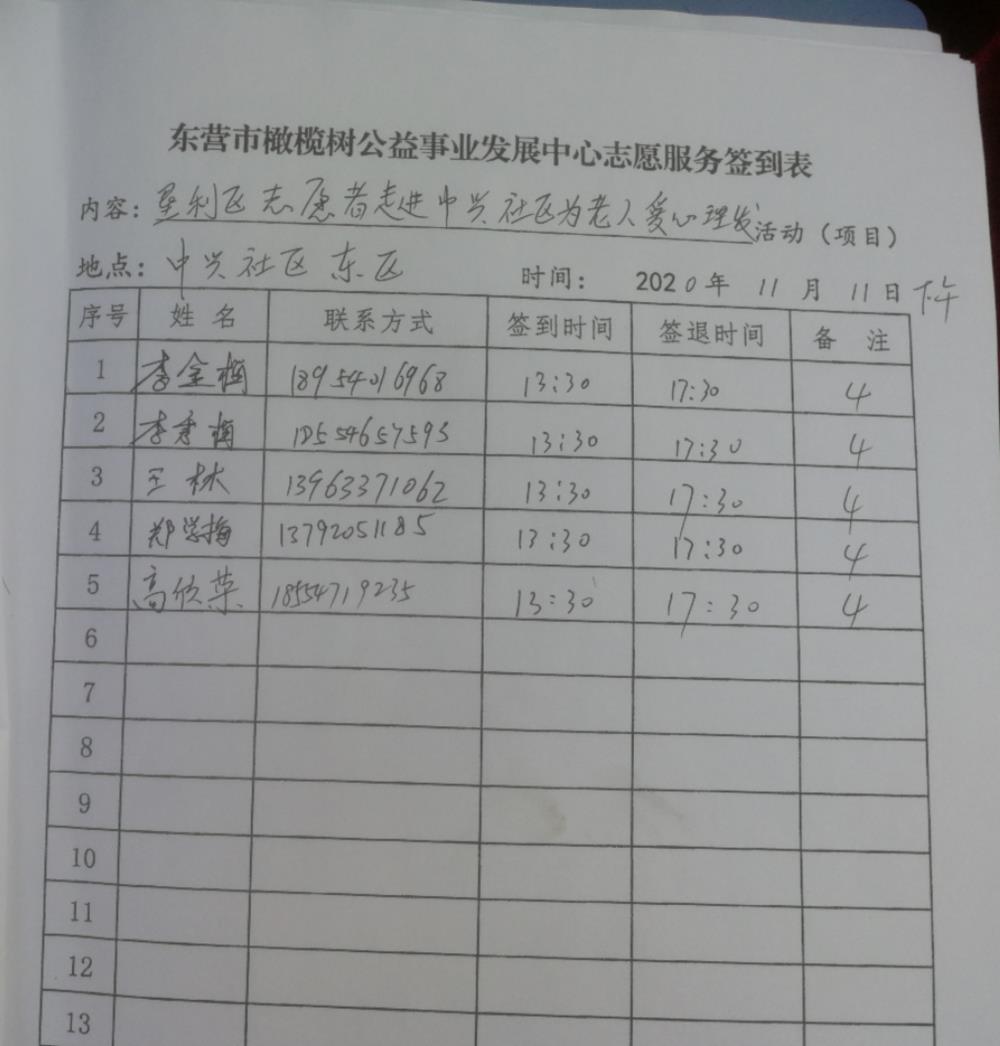 东营市橄榄树公益事业发展中心志愿服务签到表
内容：垦利区志愿者走进中兴社区为老人爱心理发活动（项目）
地点：中兴社区东区 时间： 2020年 11 月 11日 下午
序号 姓名 联系方式 签到时间 签退时间 备 注
1 李金梅 18954016968 13:30 17:30 4
2 李秀梅 18554657593 13:30 17:30 4
3 王林 13963371062 13:30 17:30 4
4 郑学梅 13792051185 13:30 17:30 4
5 高欣荣 18554719235 13:30 17:30 4
6
7
8
9
10
11
12
13